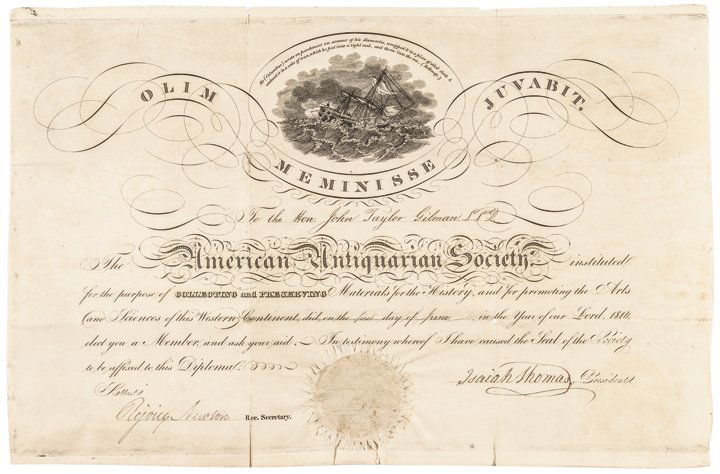 He (Columbus) wrote on parchment an account of his discoveries, wrapped it in a piece of oiled cloth &
enclosed it in a cake of wax, which he put into a tight cask, and threw into the sea. (Belknap.)
OLIM
JUVABIT.
MEMINISSE
To the Hon. John Taylor Gilman,
The American Antiquarian Society, instituted
for the purpose of COLLECTING and PRESERVING Materials for the History, and for promoting the Arts
and Sciences of this Western Continent, did, on the first day of June in the Year of our Lord, 1814
elect you a Member, and ask your aid. In testimony whereof I have caused the Seal of the Society
to be affixed to this Diploma.
Isaiah Thomas, President.
Attest:
Rejoice Newton Rec. Secretary.